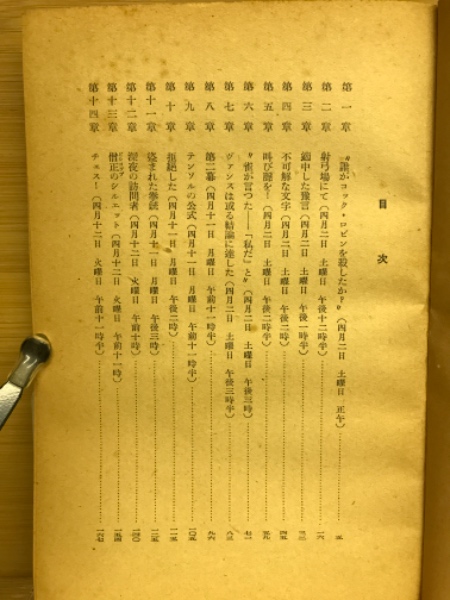 目次
第一章 “誰がコック・ロビンを殺したか?”(四月二日 土曜日 正午)……五
第二章 射弓場にて(四月二日 土曜日 午後十二時半)……一六
第三章 適中した豫言(四月二日 土曜日 午後一時半)……三三
第四章 不可解な文字(四月二日 土曜日 午後二時)……四五
第五章 叫び聲を!(四月二日 土曜日 午後二時半)……五九
第六章 “雀が言つた——『私だ』と”(四月二日 土曜日 午後三時)……七一
第七章 ヴァンスは或る結論に達した(四月二日 土曜日 午後三時半)……八三
第八章 第二幕(四月十一日 月曜日 午前十一時半)……九六
第九章 テンソルの公式(四月十一日 月曜日 午前十一時半)……一〇五
第十章 拒絶した(四月十一日 月曜日 午後二時)……一一五
第十一章 盗まれた(四月十一日 月曜日 午後三時)……一二五
第十二章 深夜の訪問者(四月十二日 火曜日 午前十時)……一四〇
第十三章 僧正のシルエット(四月十二日 火曜日 午前十一時)……一五四
第十四章 チェス!(四月十二日 火曜日 午前十一時半)……一六七